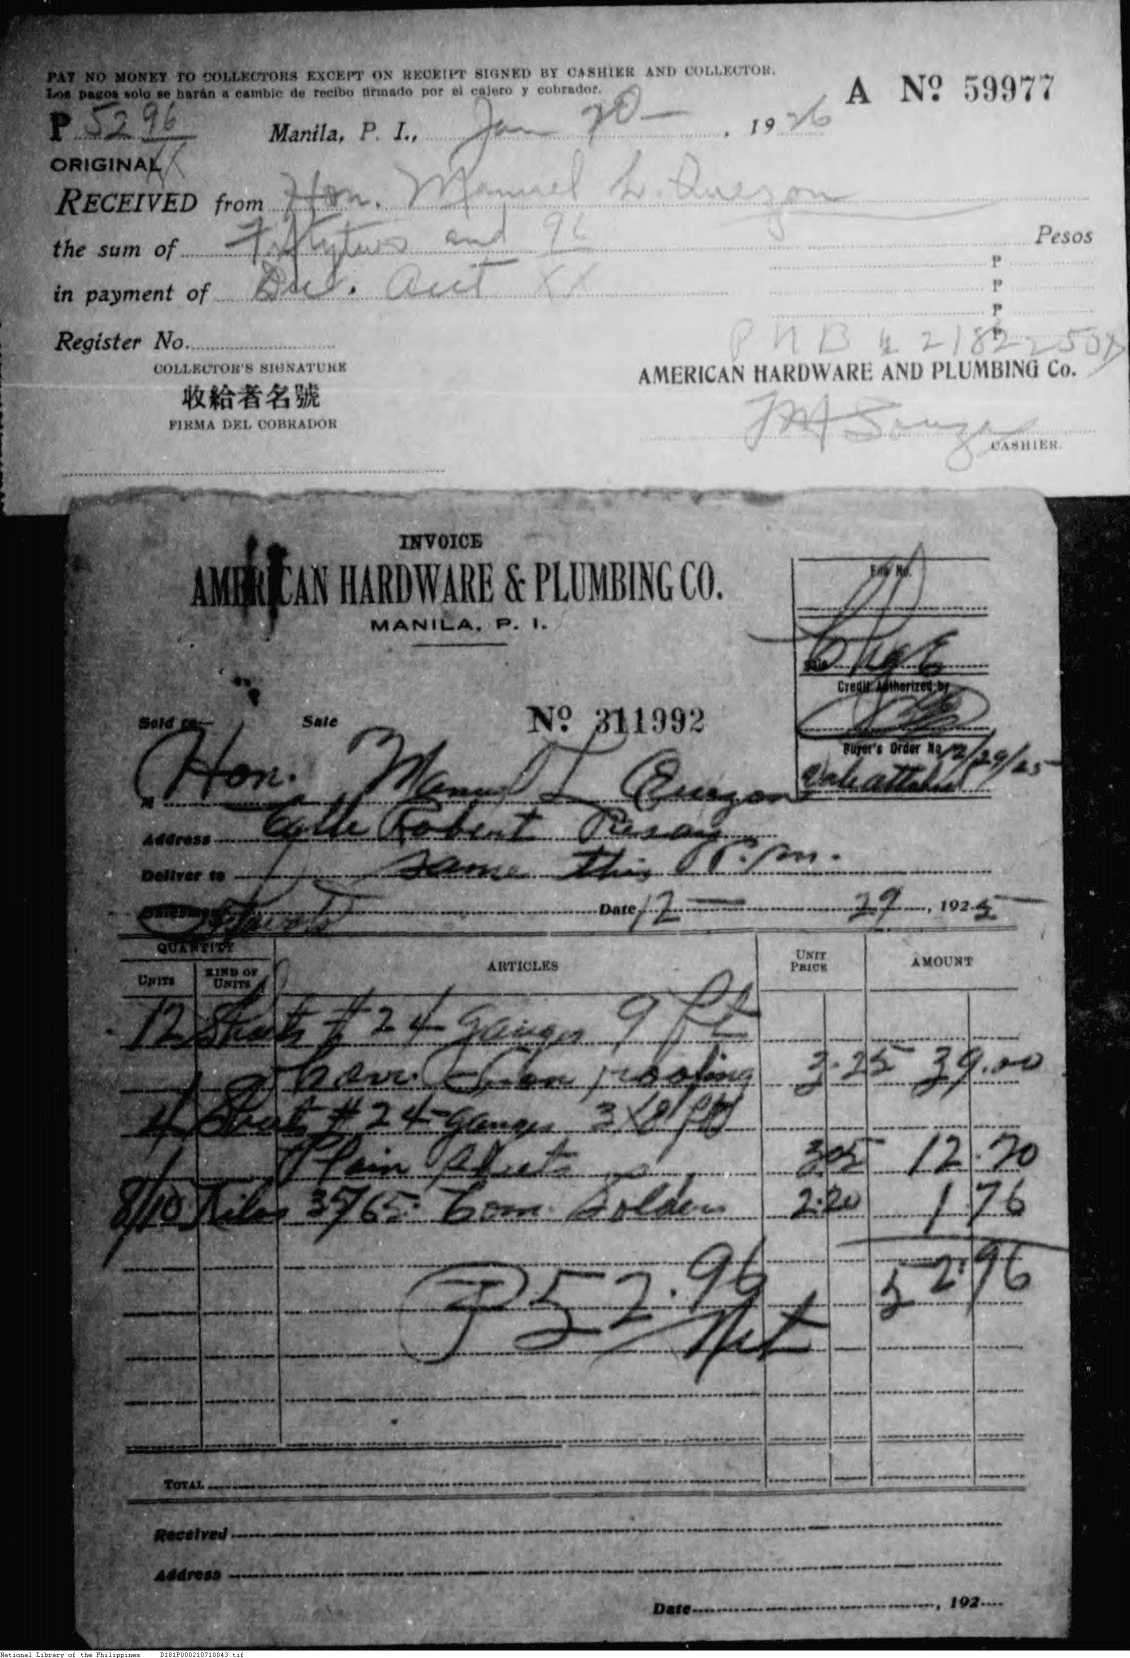 PAY NO MONEY TO COLLECTORS EXCEPT ON RECEIPT SIGNED BY CASHIER AND COLLECTOR.
Los pagos solo se harán a cambic de recibo firmado por el cajero y cobrador.
A Nº 59977
₱ 52 96
Manila, P. I., Jan 20 — , 19 26
ORIGINAL XX
RECEIVED from Hon. Manuel L. Quezon
the sum of Fiftytwo and 96 Pesos
in payment of Due. Acct XX ₱
₱
₱
PNB
Register No.
COLLECTOR'S SIGNATURE
收給者名號
FIRMA DEL COBRADOR
AMERICAN HARDWARE AND PLUMBING Co.
CASHIER.
INVOICE
AMERICAN HARDWARE & PLUMBING CO.
MANILA, P. I.
File No.
Chge
Credit Authorized by
Buyer's Order No. 12/29/25
Sold to— Sale Nº 311992
Hon. Manuel L Quezon
Address Calle Robert Pasay
Deliver to same this P.m.
Date 12 — 29 , 1925 —
QUANTITY
UNITS KIND OF UNITS ARTICLES UNIT PRICE AMOUNT
12 Sheets # 24 gauges 9 ft
Corr. Iron roofing 3.25 39.00
4 Sheets # 24 gauges 3 x 8 ft
Plain Sheets 305 12.20
8/10 Kilos 3765. Com. Solder 2.20 1 76
52.96
₱52.96
Net
TOTAL
Received
Address
Date , 192
National Library of the Philippines D181P000210710043.tif